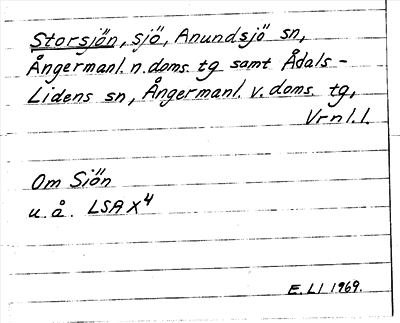 Storsjön, sjö, Anundsjö sn,
Ångermanl. n. doms. tg samt Ådals-
Lidens sn, Ångermanl. v. doms. tg,
Vrnl. l.
Om Sjön
u. å. LSA X4
E. LI 1969.